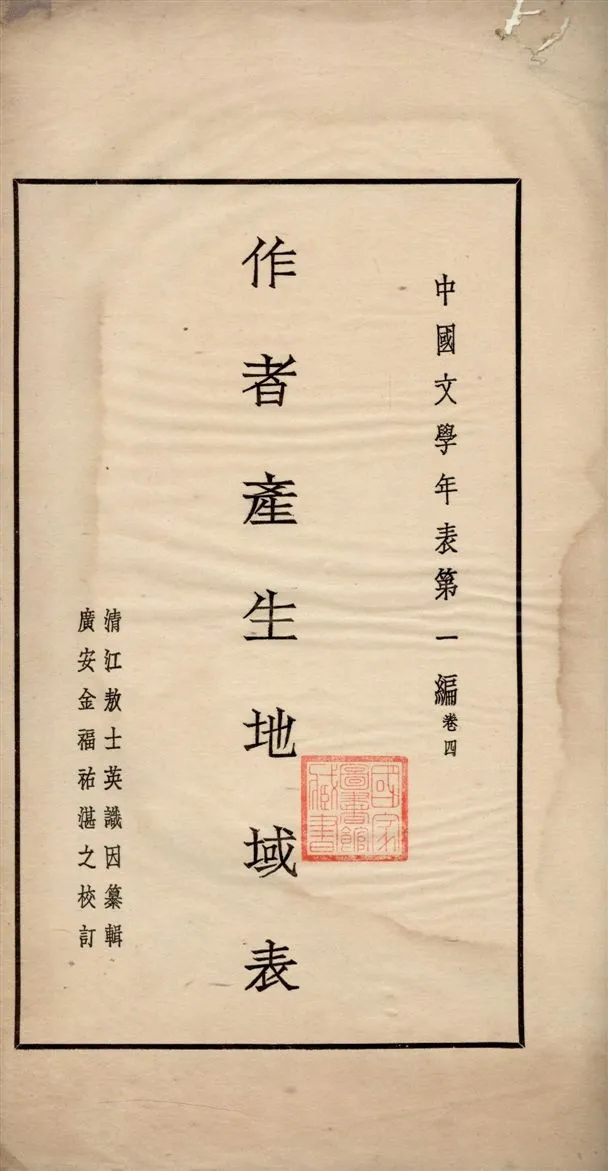 中國文學年表第一編卷四
作者產生地域表
國家
圖書館
藏書
清江敖士英識因纂輯
廣安金福祐湛之校訂